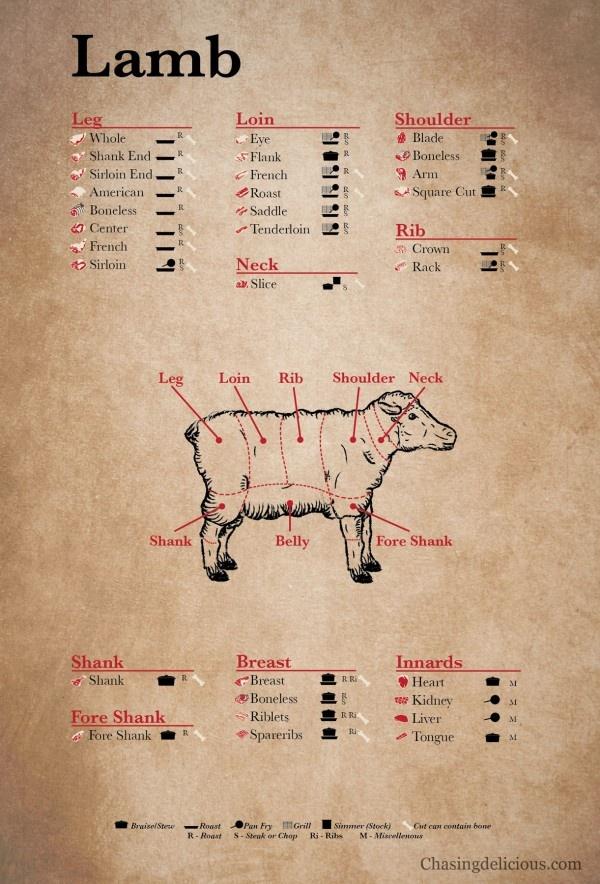 Lamb
Leg
Whole R
Shank End R
Sirloin End R
American R
Boneless R
Center R S
French R
Sirloin R S
Loin
Eye R S
Flank R
French R
Roast R S
Saddle R S
Tenderloin R S
Neck
Slice S
Shoulder
Blade R S
Boneless R S
Arm R S
Square Cut R
Rib
Crown R S
Rack R S
Leg Loin Rib Shoulder Neck
Shank Belly Fore Shank
Shank
Shank R
Fore Shank
Fore Shank R
Breast
Breast R Ri
Boneless R S
Riblets R Ri
Spareribs Ri
Innards
Heart M
Kidney M
Liver M
Tongue M
Braise/Stew Roast Pan Fry Grill Simmer (Stock) Cut can contain bone
R - Roast S - Steak or Chop Ri - Ribs M - Miscellenous
Chasingdelicious.com